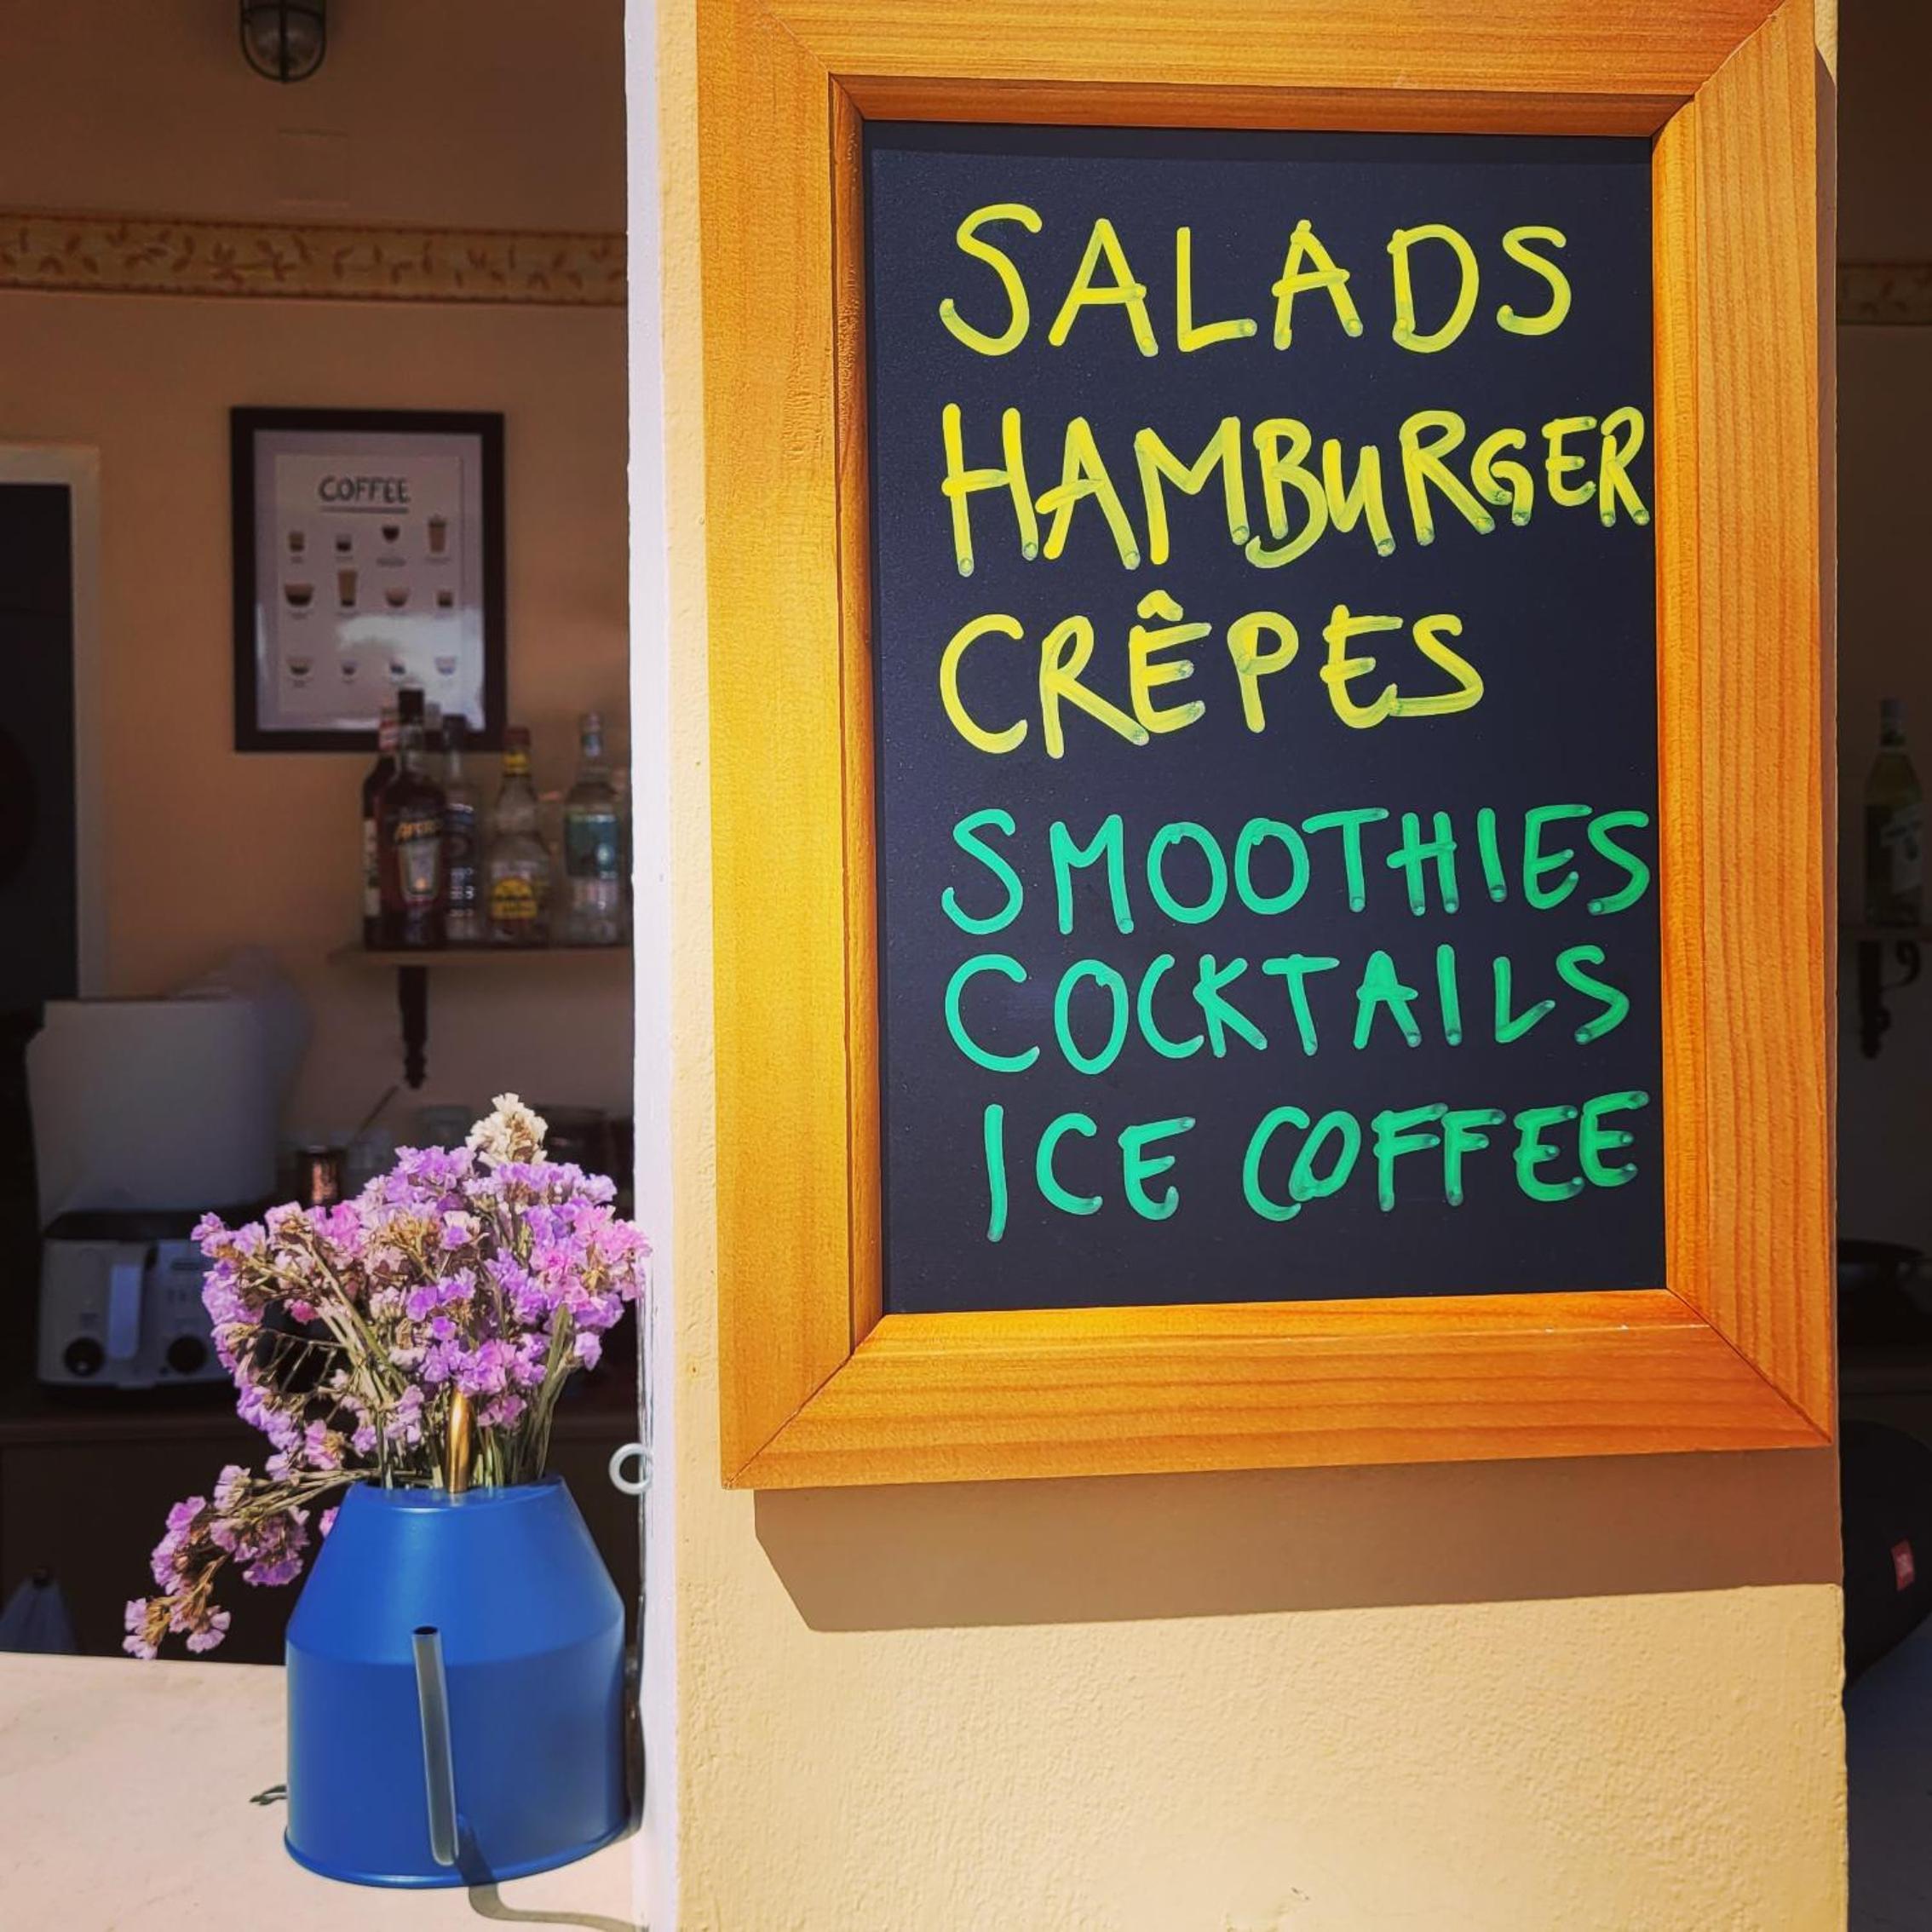 SALADS
HAMBURGER
CRÊPES
SMOOTHIES
COCKTAILS
ICE COFFEE
COFFEE